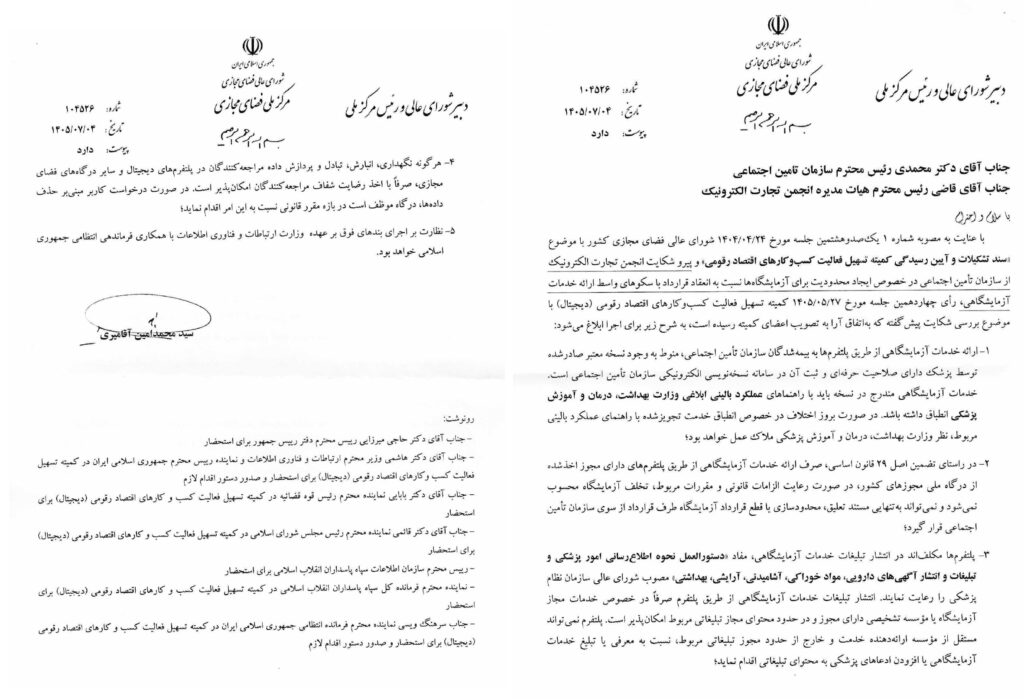 جمهوری اسلامی ایران
شورای عالی فضای مجازی
مرکز ملی فضای مجازی
دبیر شورای عالی و رئیس مرکز ملی
شماره: ۱۰۴۵۲۶
تاریخ: ۱۴۰۵/۰۷/۰۴
پیوست: دارد
جناب آقای دکتر محمدی رئیس محترم سازمان تامین اجتماعی
جناب آقای قاضی رئیس محترم هیات مدیره انجمن تجارت الکترونیک
با سلام و احترام
با عنایت به مصوبه شماره ۱ یک‌صدوهشتمین جلسه مورخ ۱۴۰۴/۰۴/۲۴ شورای عالی فضای مجازی کشور با موضوع
«سند تشکیلات و آیین رسیدگی کمیته تسهیل فعالیت کسب‌وکارهای اقتصاد رقومی» و پیرو شکایت انجمن تجارت الکترونیک
از سازمان تأمین اجتماعی در خصوص ایجاد محدودیت برای آزمایشگاه‌ها نسبت به انعقاد قرارداد با سکوهای واسط ارائه خدمات
آزمایشگاهی، رأی چهاردهمین جلسه مورخ ۱۴۰۵/۰۵/۲۷ کمیته تسهیل فعالیت کسب‌وکارهای اقتصاد رقومی (دیجیتال) با
موضوع بررسی شکایت پیش‌گفته که به‌اتفاق آرا به تصویب اعضای کمیته رسیده است، به شرح زیر برای اجرا ابلاغ می‌شود:
۱- ارائه خدمات آزمایشگاهی از طریق پلتفرم‌ها به بیمه‌شدگان سازمان تأمین اجتماعی، منوط به وجود نسخه معتبر صادرشده
توسط پزشک دارای صلاحیت حرفه‌ای و ثبت آن در سامانه نسخه‌نویسی الکترونیکی سازمان تأمین اجتماعی است.
خدمات آزمایشگاهی مندرج در نسخه باید با راهنماهای عملکرد بالینی ابلاغی وزارت بهداشت، درمان و آموزش
پزشکی انطباق داشته باشد. در صورت بروز اختلاف در خصوص انطباق خدمت تجویزشده با راهنمای عملکرد بالینی
مربوط، نظر وزارت بهداشت، درمان و آموزش پزشکی ملاک عمل خواهد بود؛
۲- در راستای تضمین اصل ۲۹ قانون اساسی، صرف ارائه خدمات آزمایشگاهی از طریق پلتفرم‌های دارای مجوز اخذشده
از درگاه ملی مجوزهای کشور، در صورت رعایت الزامات قانونی و مقررات مربوط، تخلف آزمایشگاه محسوب
نمی‌شود و نمی‌تواند به‌تنهایی مستند تعلیق، محدودسازی یا قطع قرارداد آزمایشگاه طرف قرارداد از سوی سازمان تأمین
اجتماعی قرار گیرد؛
۳- پلتفرم‌ها مکلف‌اند در انتشار تبلیغات خدمات آزمایشگاهی، مفاد «دستورالعمل نحوه اطلاع‌رسانی امور پزشکی و
تبلیغات و انتشار آگهی‌های دارویی، مواد خوراکی، آشامیدنی، آرایشی، بهداشتی» مصوب شورای عالی سازمان نظام
پزشکی را رعایت نمایند. انتشار تبلیغات خدمات آزمایشگاهی از طریق پلتفرم صرفاً در خصوص خدمات مجاز
آزمایشگاه یا مؤسسه تشخیصی دارای مجوز و در حدود محتوای مجاز تبلیغاتی مربوط امکان‌پذیر است. پلتفرم نمی‌تواند
مستقل از مؤسسه ارائه‌دهنده خدمت و خارج از حدود مجوز تبلیغاتی مربوط، نسبت به معرفی یا تبلیغ خدمات
آزمایشگاهی یا افزودن ادعاهای پزشکی به محتوای تبلیغاتی اقدام نماید؛
جمهوری اسلامی ایران
شورای عالی فضای مجازی
مرکز ملی فضای مجازی
دبیر شورای عالی و رئیس مرکز ملی
شماره: ۱۰۴۵۲۶
تاریخ: ۱۴۰۵/۰۷/۰۴
پیوست: دارد
۴- هرگونه نگهداری، انبارش، تبادل و پردازش داده مراجعه‌کنندگان در پلتفرم‌های دیجیتال و سایر درگاه‌های فضای
مجازی، صرفاً با اخذ رضایت شفاف مراجعه‌کنندگان امکان‌پذیر است. در صورت درخواست کاربر مبنی‌بر حذف
داده‌ها، درگاه موظف است در بازه مقرر قانونی نسبت به این امر اقدام نماید؛
۵- نظارت بر اجرای بندهای فوق بر عهده وزارت ارتباطات و فناوری اطلاعات با همکاری فرماندهی انتظامی جمهوری
اسلامی خواهد بود.
سید محمدامین آقامیری
رونوشت:
- جناب آقای دکتر حاجی میرزایی رییس محترم دفتر رییس جمهور برای استحضار
- جناب آقای دکتر هاشمی وزیر محترم ارتباطات و فناوری اطلاعات و نماینده رییس محترم جمهوری اسلامی ایران در کمیته تسهیل
فعالیت کسب وکارهای اقتصاد رقومی (دیجیتال) برای استحضار و صدور دستور اقدام لازم
- جناب آقای دکتر بابایی نماینده محترم رئیس قوه قضائیه در کمیته تسهیل فعالیت کسب و کارهای اقتصاد رقومی (دیجیتال) برای
استحضار
- جناب آقای دکتر قائمی نماینده محترم رئیس مجلس شورای اسلامی در کمیته تسهیل فعالیت کسب و کارهای اقتصاد رقومی (دیجیتال)
برای استحضار
- رییس محترم سازمان اطلاعات سپاه پاسداران انقلاب اسلامی برای استحضار
- نماینده محترم فرمانده کل سپاه پاسداران انقلاب اسلامی در کمیته تسهیل فعالیت کسب و کارهای اقتصاد رقومی (دیجیتال) برای
استحضار
- جناب سرهنگ ویسی نماینده محترم فرمانده انتظامی جمهوری اسلامی ایران در کمیته تسهیل فعالیت کسب و کارهای اقتصاد رقومی
(دیجیتال) برای استحضار و صدور دستور اقدام لازم